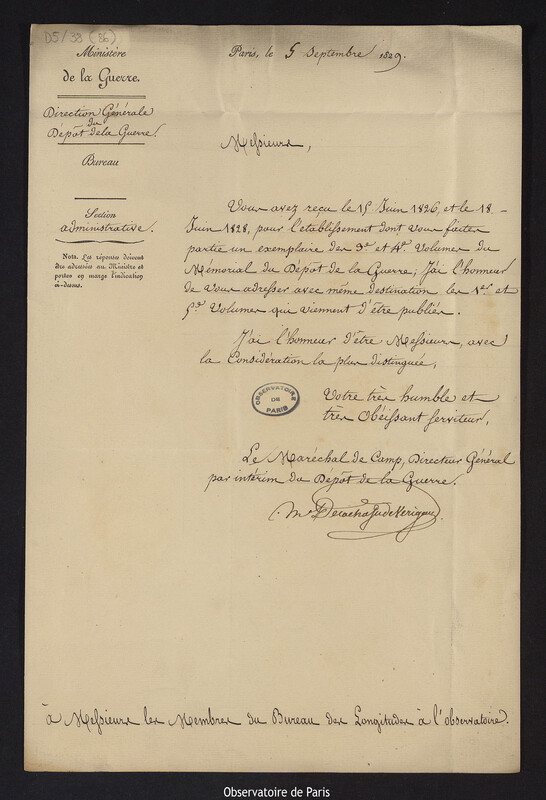 D5/33 (86)
Ministère
de la Guerre.
Direction Générale
du
Dépôt de la Guerre.
Bureau
Section
administrative.
Nota. Les réponses doivent
être adressées au Ministre et
porter en marge l'indication
ci-dessus.
Paris, le 5 Septembre 1829.
Messieurs,
Vous avez reçu le 15 Juin 1826, et le 18
Juin 1828, pour l'établissement dont vous faites
partie un exemplaire des 3e. et 4e. Volumes du
Mémorial du Dépôt de la Guerre; J'ai l'honneur
de vous adresser avec même destination les 1er. et
5e. Volumes qui viennent d'être publiés.
J'ai l'honneur d'être Messieurs, avec
la Considération la plus distinguée,
Votre très humble et
très Obéissant serviteur,
OBSERVATOIRE
DE
PARIS
Le Maréchal de Camp, Directeur Général
par intérim du Dépôt de la Guerre.
à Messieurs les Membres du Bureau des Longitudes à l'observatoire.
Observatoire de Paris